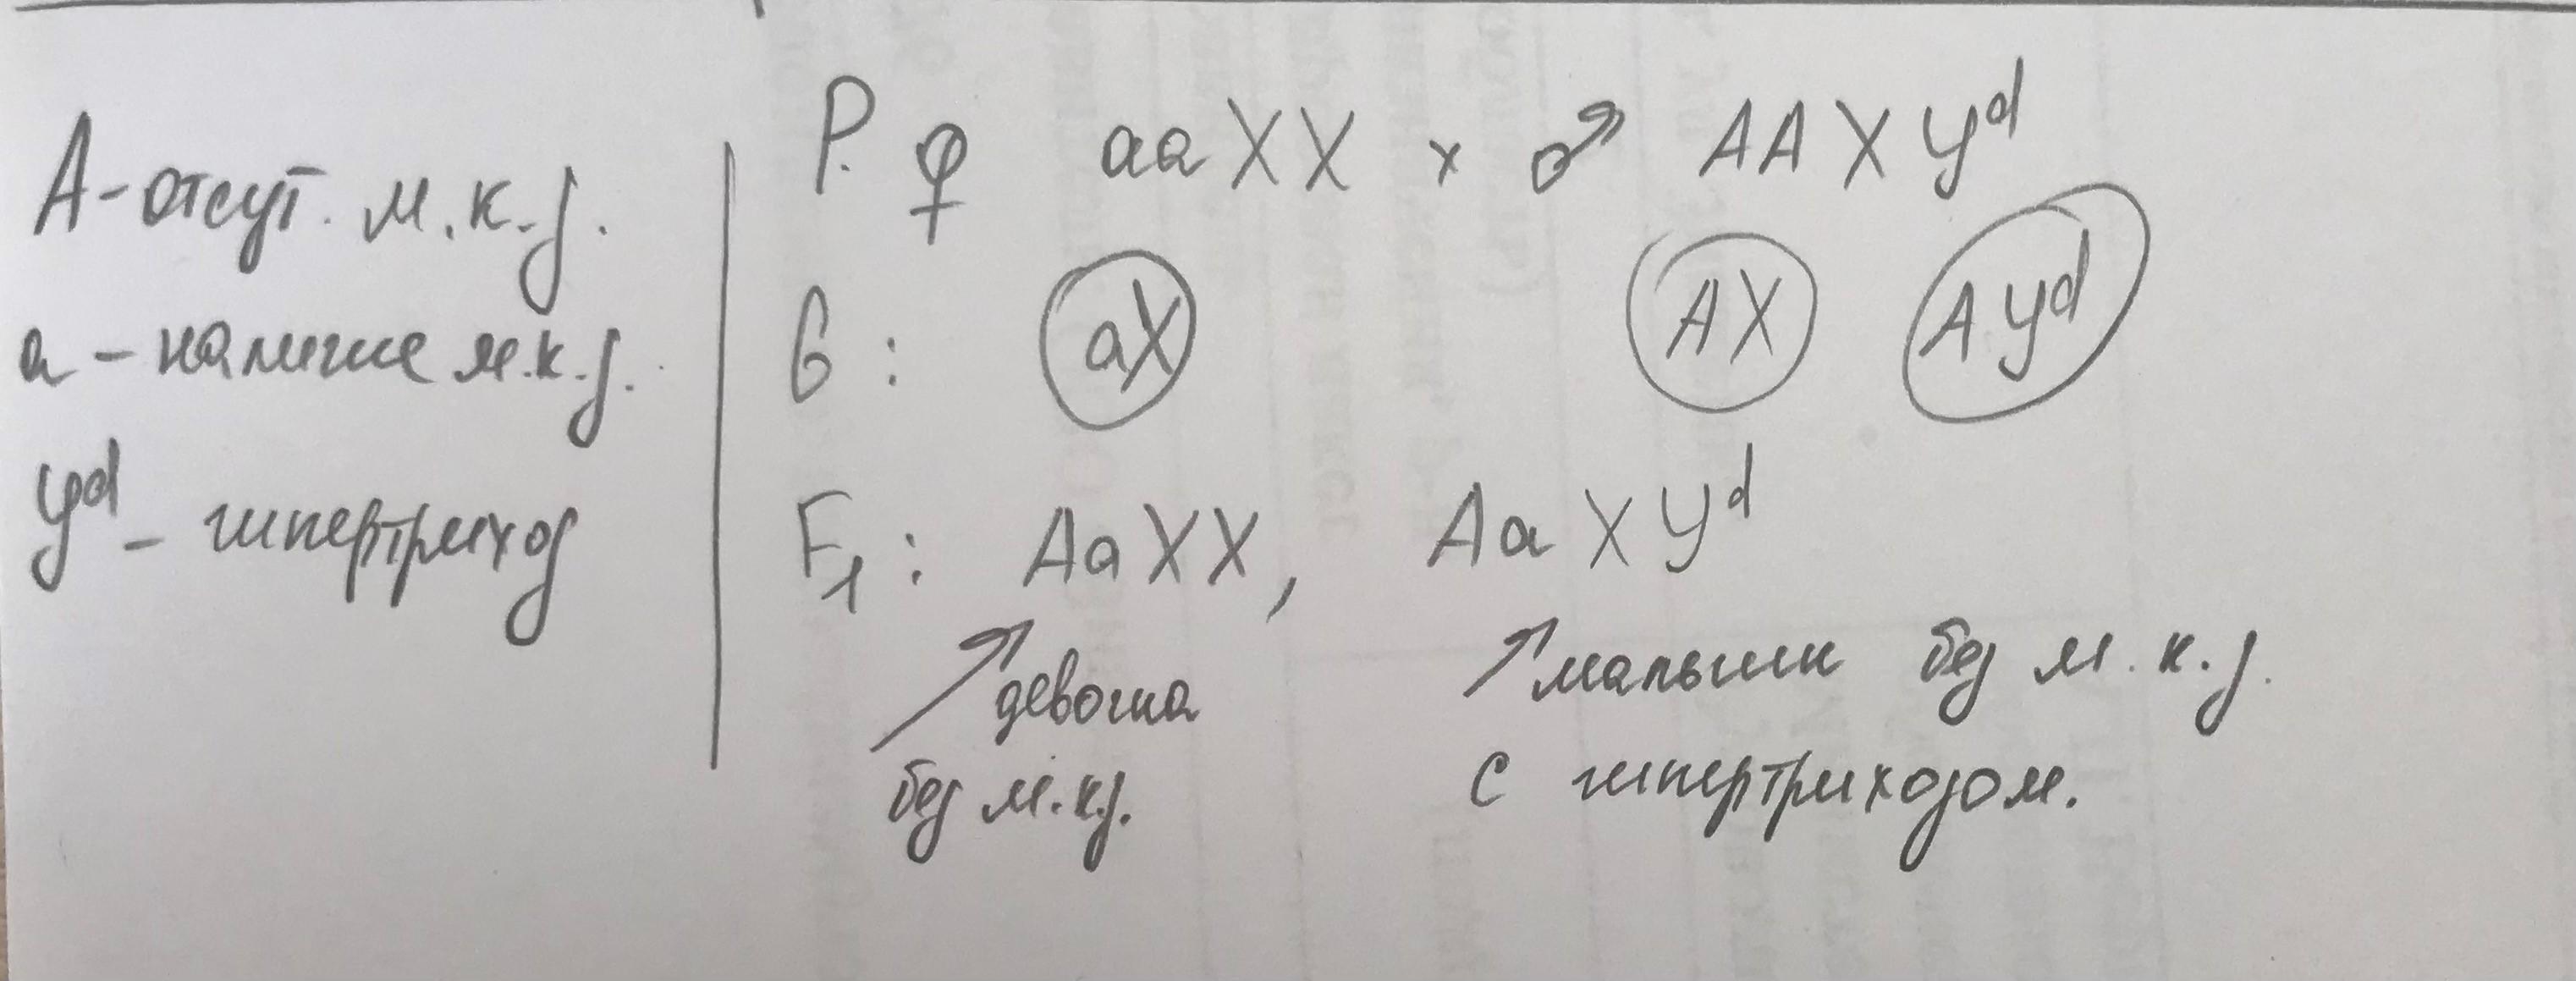 А - отсут. м.к.з.
а - наличие м.к.з.
Yᵈ - гипертрихоз
P. ♀ aaXX × ♂ AAXYᵈ
G: aX AX AYᵈ
F₁: AaXX, AaXYᵈ
девочка
без м.к.з.
мальчик без м.к.з.
с гипертрихозом.